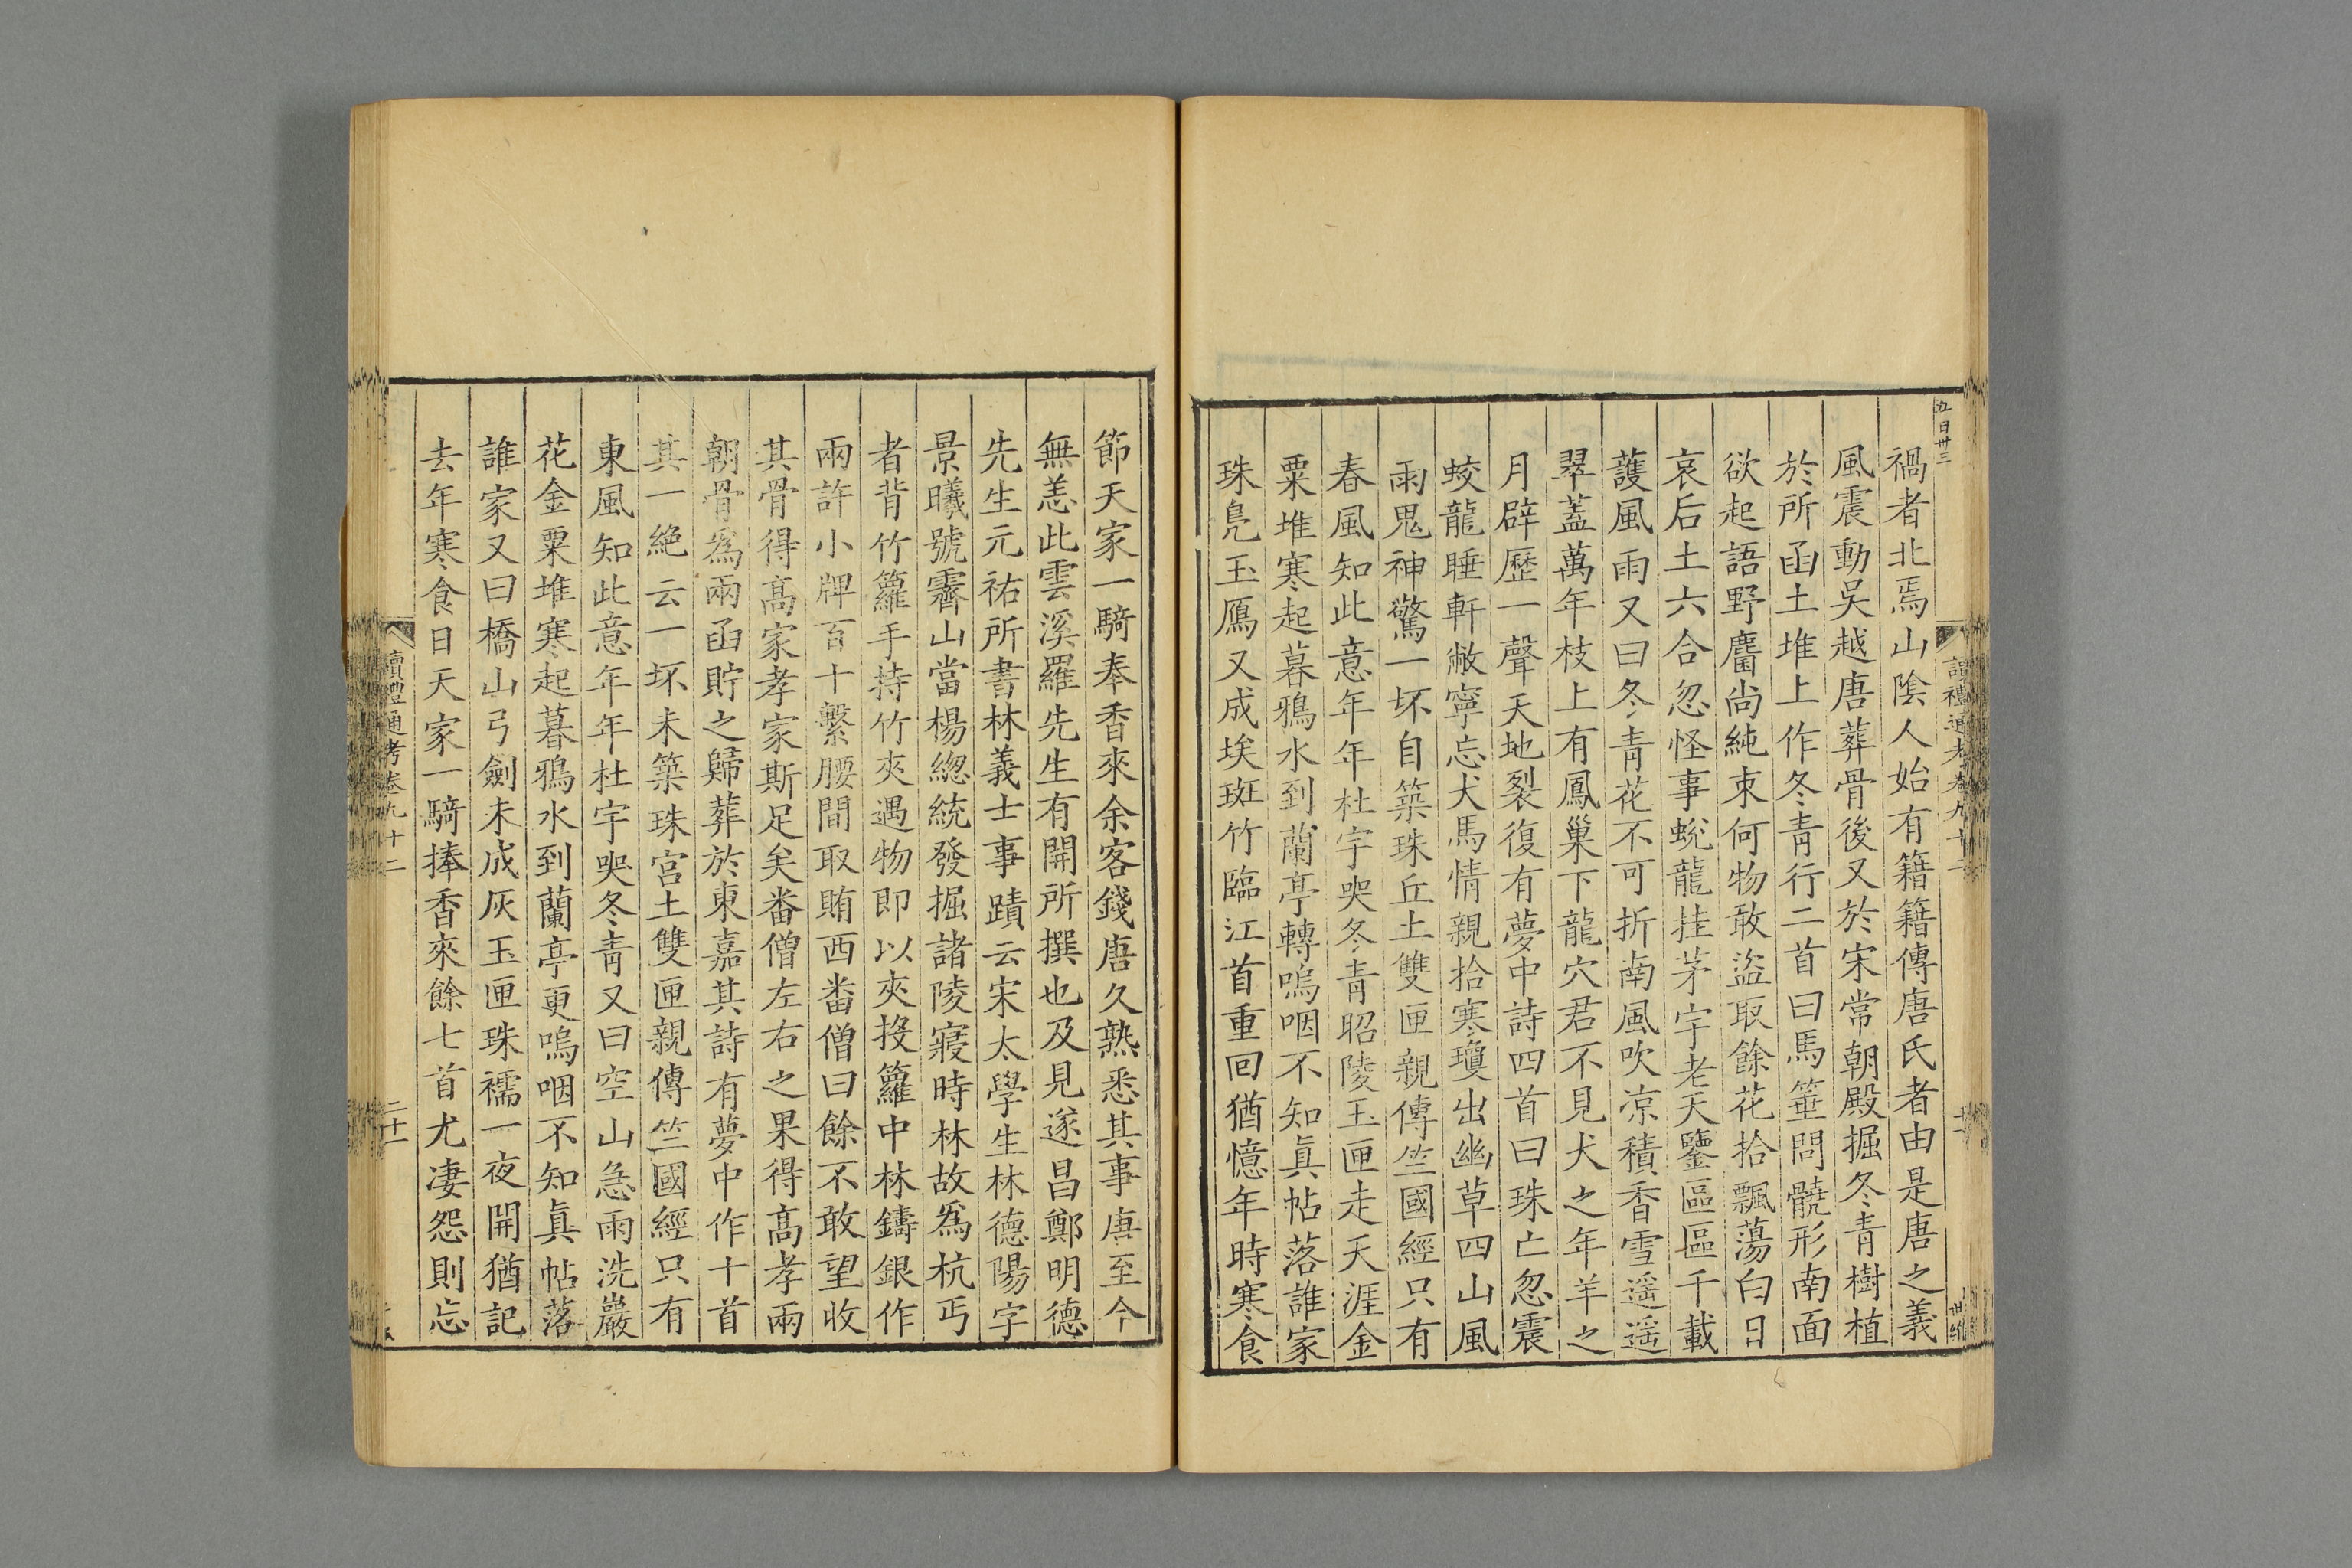 五百卅三
讀禮通考卷九十二
禍者北焉山陰人始有籍籍傳唐氏者由是唐之義
風震動吳越唐葬骨後又於宋常朝殿掘冬青樹植
於所函土堆上作冬青行二首曰馬箠問髐形南面
欲起語野麕尚純束何物敢盜取餘花拾飄蕩白日
哀后土六合忽怪事蛻龍挂茅宇老天鑒區區千載
護風雨又曰冬青花不可折南風吹凉積香雪遥遥
翠蓋萬年枝上有鳳巢下龍穴君不見犬之年羊之
月辟歷一聲天地裂復有夢中詩四首曰珠亡忽震
蛟龍睡軒敝寧忘犬馬情親拾寒瓊出幽草四山風
雨鬼神驚一坏自築珠丘土雙匣親傳竺國經只有
春風知此意年年杜宇哭冬青昭陵玉匣走天涯金
粟堆寒起暮鴉水到蘭亭轉嗚咽不知眞帖落誰家
珠鳧玉鴈又成埃斑竹臨江首重回猶憶年時寒食
節天家一騎奉香來余客錢唐久熟悉其事唐至今
無恙此雲溪羅先生有開所撰也及見遂昌鄭明德
先生元祐所書林義士事蹟云宋太學生林德陽字
景曦號霽山當楊總統發掘諸陵寢時林故爲杭丐
者背竹籮手持竹夾遇物即以夾投籮中林鑄銀作
兩許小牌百十繫腰間取賄西番僧曰餘不敢望收
其骨得高家孝家斯足矣番僧左右之果得高孝兩
朝骨爲兩函貯之歸葬於東嘉其詩有夢中作十首
其一絶云一坏未築珠宮土雙匣親傳竺國經只有
東風知此意年年杜宇哭冬青又曰空山急雨洗巖
花金粟堆寒起暮鴉水到蘭亭更嗚咽不知眞帖落
誰家又曰橋山弓劍未成灰玉匣珠襦一夜開猶記
去年寒食日天家一騎捧香來餘七首尤凄怨則忘
讀禮通考卷九十二
二十一